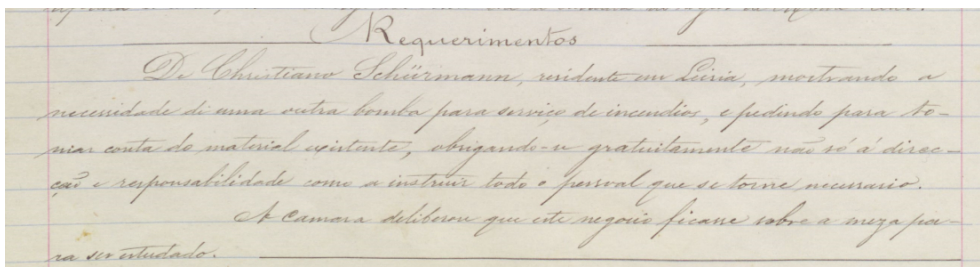 Requerimentos
De Christiano Schürmann, residente em Leiria, mostrando a
necessidade de uma outra bomba para serviço de incendios, e pedindo para to-
mar conta do material existente, obrigando-se gratuitamente não só á direc-
ção e responsabilidade como a instruir todo o pessoal que se torne necessario.
A Camara deliberou que este negocio ficasse sobre a meza pa-
ra ser estudado.